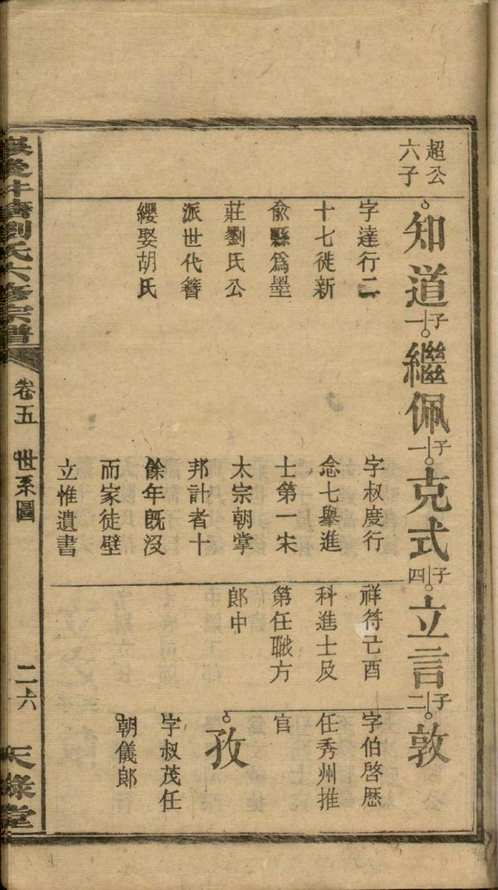 超公
六子
知道
子一
繼佩
子一
克式
子四
立言
子二
敦
字達行二
十七徙新
俞縣爲墨
莊劉氏公
派世代簪
纓娶胡氏
字叔度行
念七舉進
士第一宋
太宗朝掌
邦計者十
餘年旣沒
而家徒壁
立惟遺書
祥符己酉
科進士及
第任職方
郎中
字伯啓歷
任秀州推
官
孜
字叔茂任
朝儀郎
劉氏六修宗譜
卷五
世系圖
二六
天祿堂